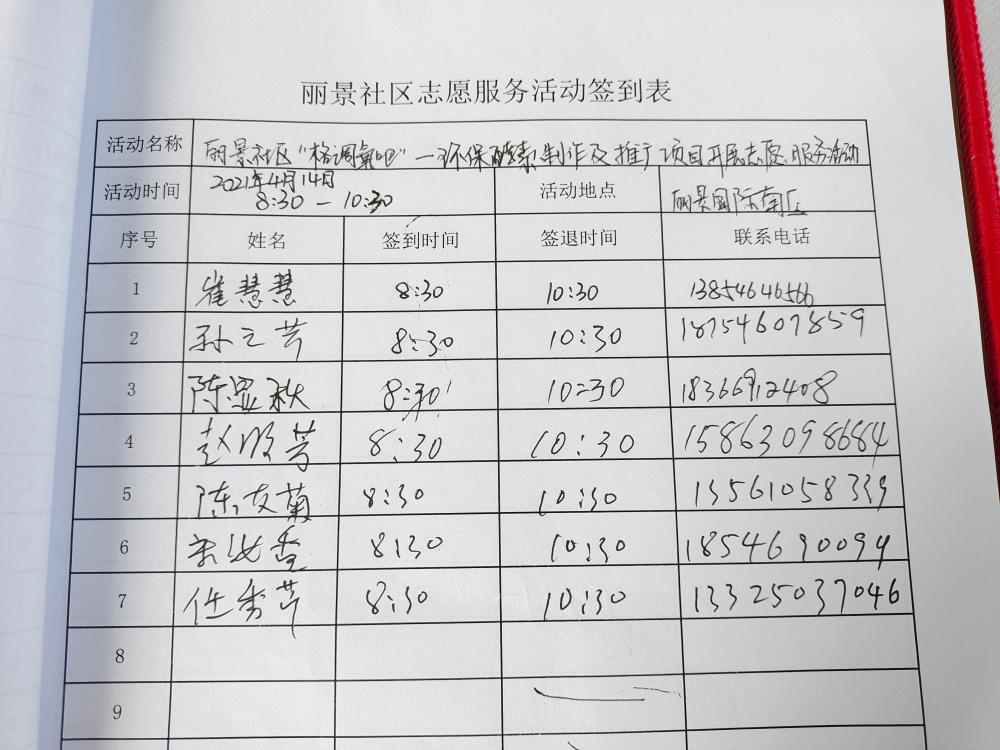 丽景社区志愿服务活动签到表
活动名称 丽景社区"格调氧吧"—环保酵素制作及推广项目开展志愿服务活动
活动时间 2021年4月14日 8:30 — 10:30 活动地点 丽景国际南区
序号 姓名 签到时间 签退时间 联系电话
1 崔慧慧 8:30 10:30 13854646566
2 孙之芳 8:30 10:30 18754607859
3 陈显秋 8:30 10:30 18366912408
4 赵明芳 8:30 10:30 15863098684
5 陈友菊 8:30 10:30 13561058339
6 8:30 10:30 1854690094
7 任秀芹 8:30 10:30 13325037046
8
9